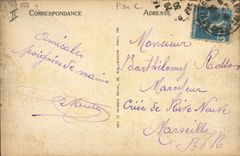 CORRESPONDANCE
ADRESSE
Amicales
poignées de mains
Monsieur
Barthélemy Rosso
Mareyeur
Criée de Rive Neuve
Marseille
B d R